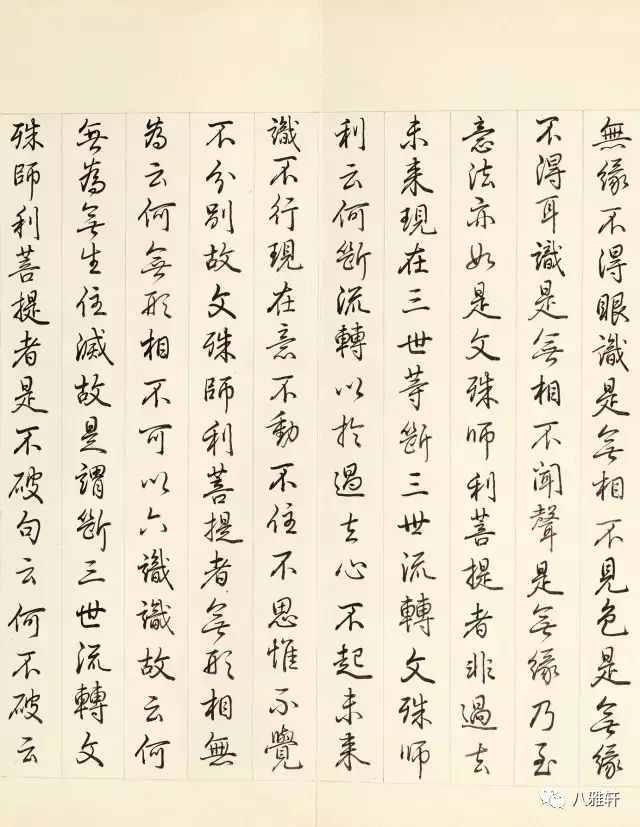 無緣不得眼識是無相不見色是無緣
不得耳識是無相不聞聲是無緣乃至
意法亦如是文殊師利菩提者非過去
未來現在三世等斷三世流轉文殊師
利云何斷流轉以於過去心不起未來
識不行現在意不動不住不思惟不覺
不分別故文殊師利菩提者無形相無
為云何無形相不可以六識識故云何
無為無生住滅故是謂斷三世流轉文
殊師利菩提者是不破句云何不破云
八雅轩